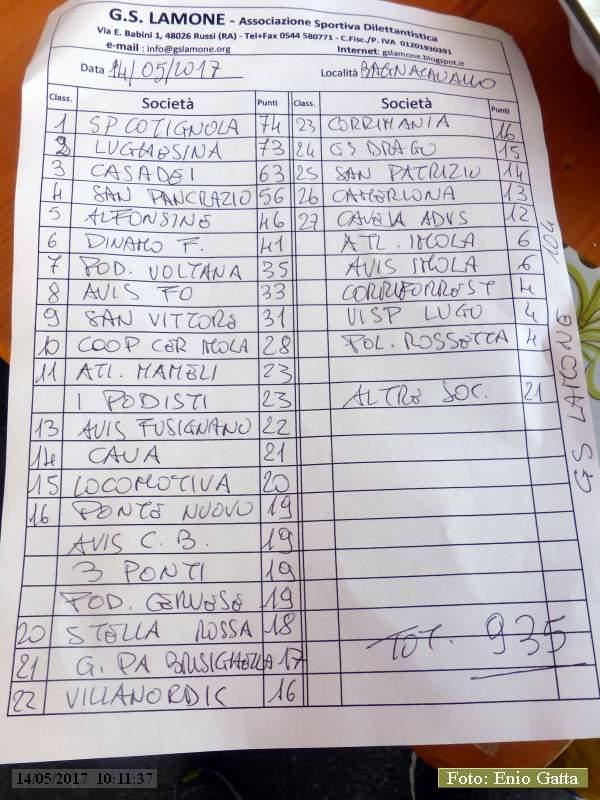 G.S. LAMONE - Associazione Sportiva Dilettantistica
Via E. Babini 1, 48026 Russi (RA) - Tel+Fax 0544 580771 - C.Fisc./P. IVA 01201930391
e-mail : info@gslamone.org Internet: gslamone.blogspot.it
Data 14/05/2017 Località BAGNACAVALLO
Class. Società Punti Class. Società Punti
1 SP COTIGNOLA 74 23 CORRIMANIA 16
2 LUGHESINA 73 24 GS DRAGO 15
3 CASADEI 63 25 SAN PATRIZIO 14
4 SAN PANCRAZIO 56 26 CAMERLONA 13
5 ALFONSINE 46 27 CAVEJA ADVS 12
6 DINAMO F. 41 ATL. IMOLA 6
7 POD. VOLTANA 35 AVIS IMOLA 6
8 AVIS FO 33 CORRIFORREST 4
9 SAN VITTORE 31 UISP LUGO 4
10 COOP CER IMOLA 28 POL. ROSSETTA 4
11 ATL. MAMELI 23
I PODISTI 23 ALTRE SOC. 21
13 AVIS FUSIGNANO 22
14 CAVA 21
15 LOCOMOTIVA 20
16 PONTE NUOVO 19
AVIS C. B. 19
3 PONTI 19
POD. CERVESE 19
20 STELLA ROSSA 18 TOT. 935
21 G. PA BRISIGHELLA 17
22 VILLANORDIC 16
GS LAMONE 104
14/05/2017 10:11:37
Foto: Enio Gatta